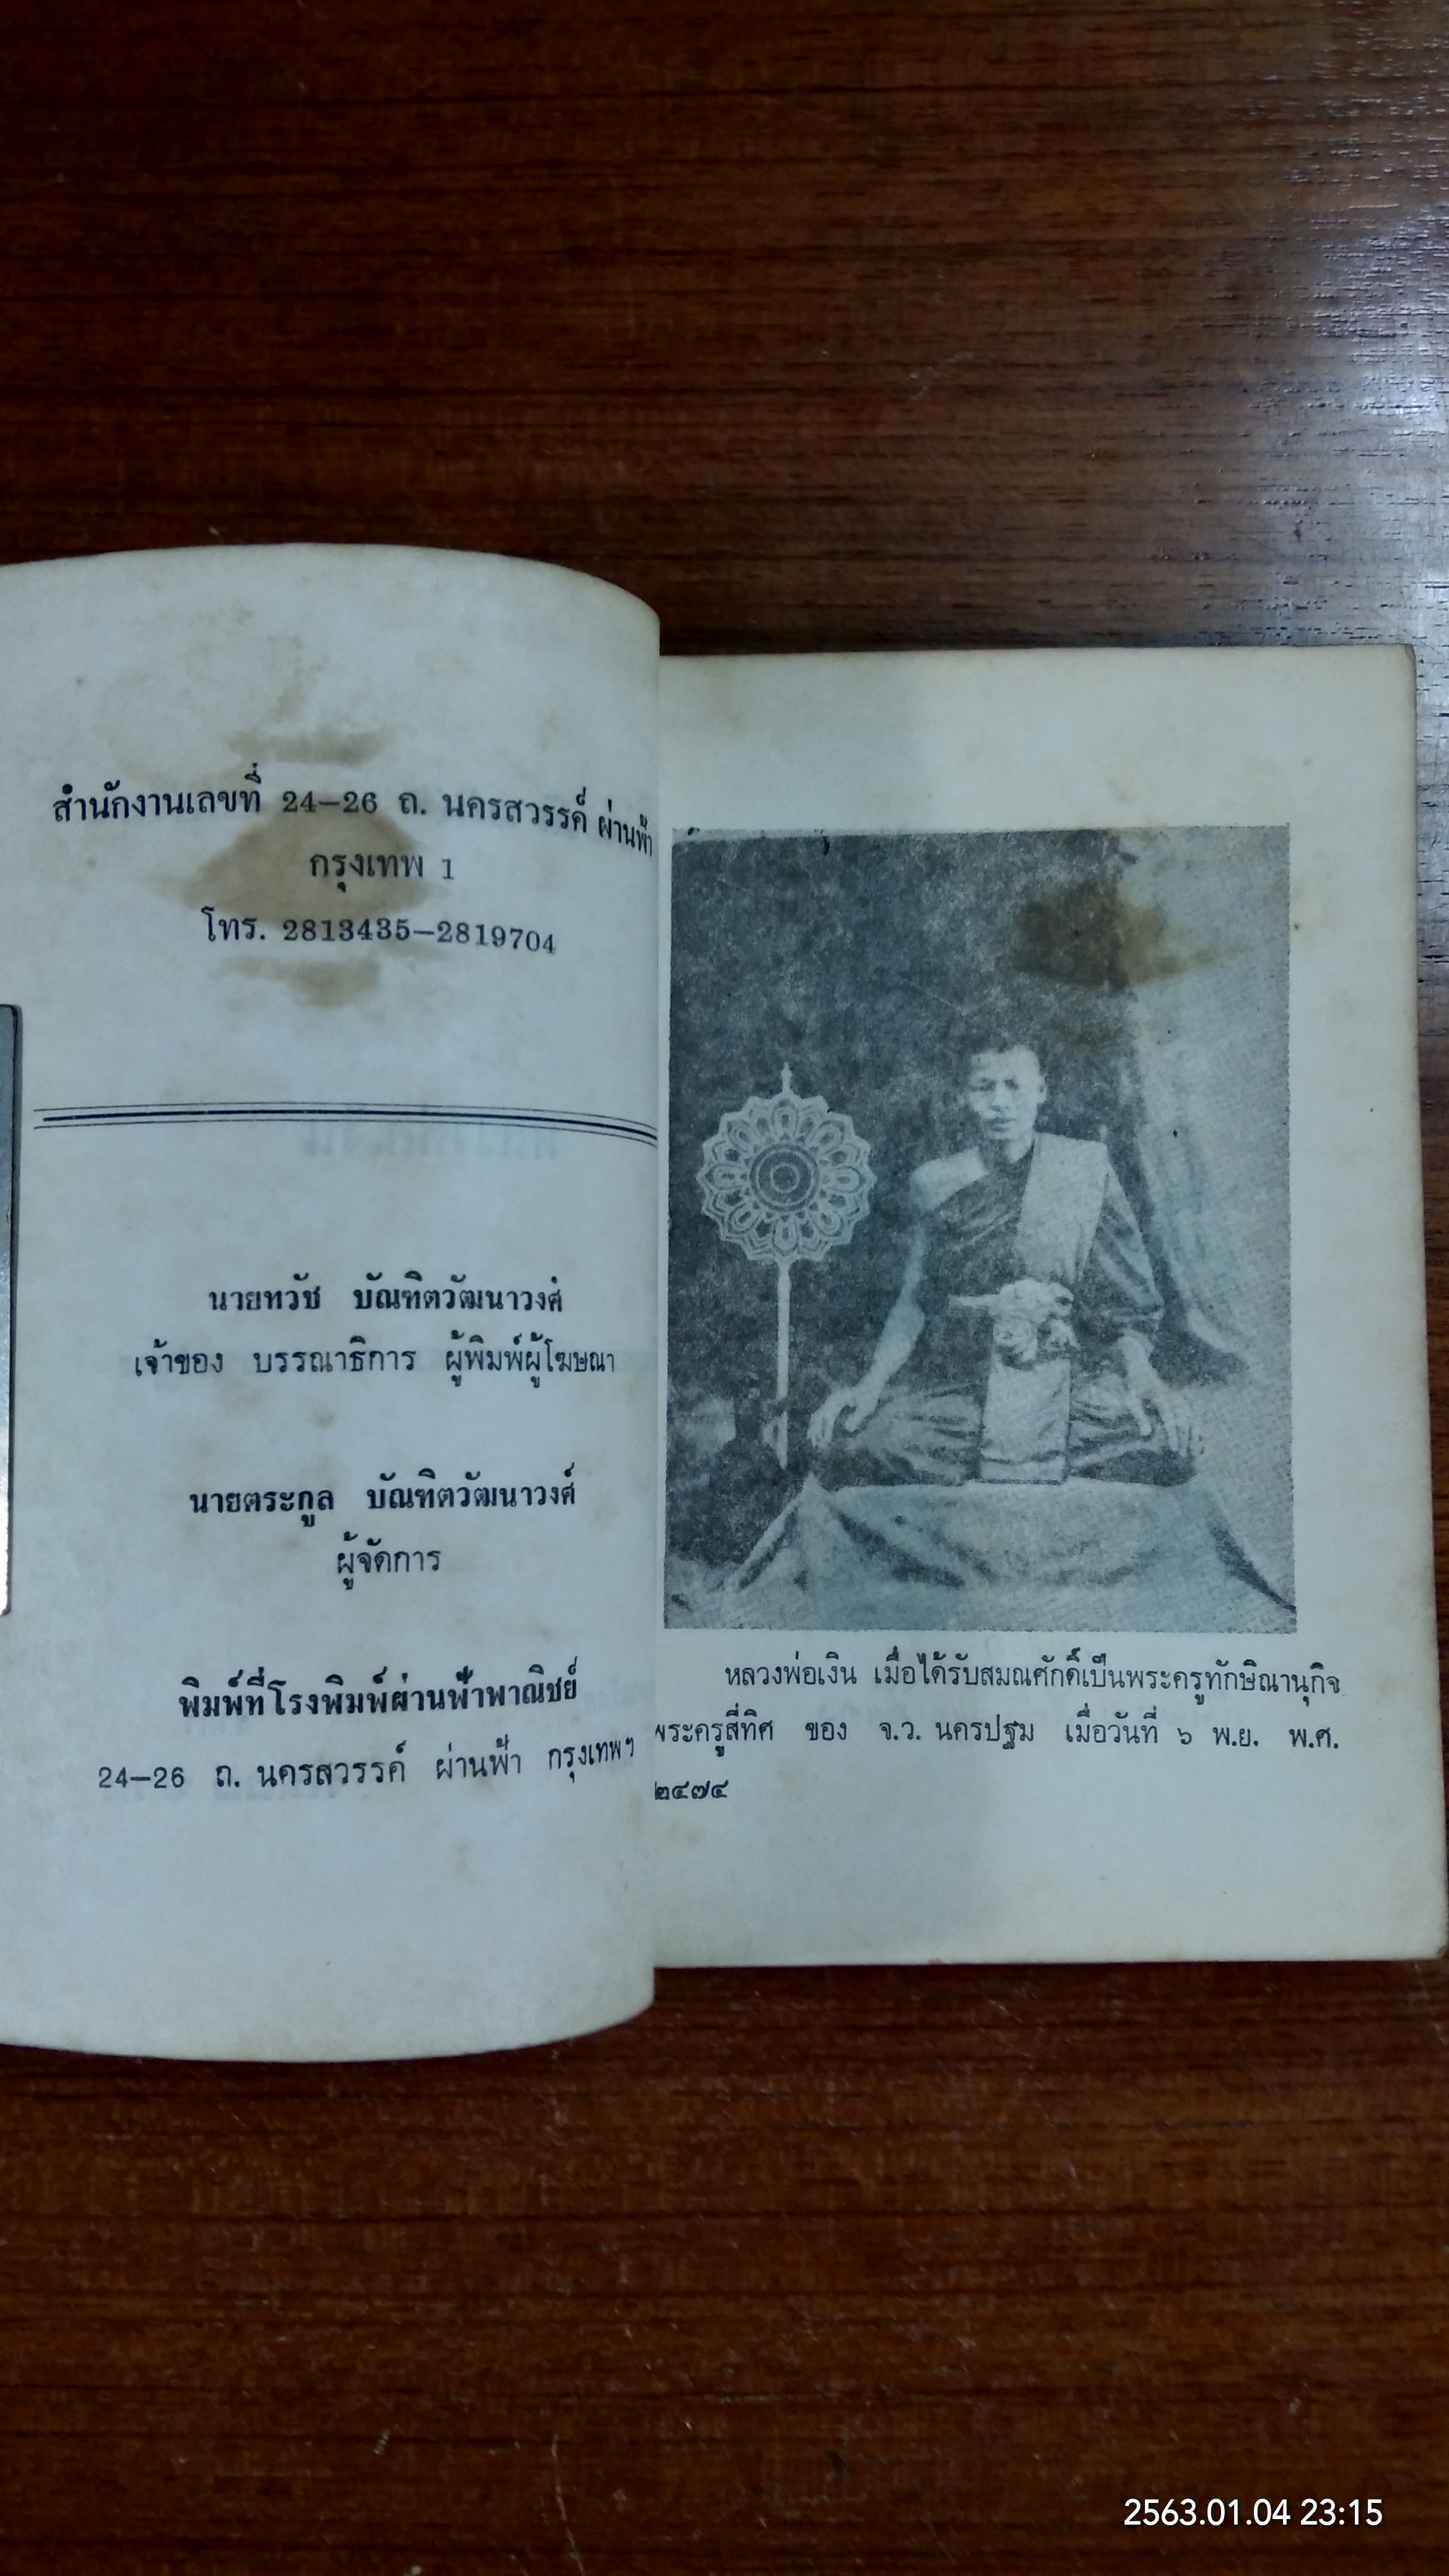 สำนักงานเลขที่ 24—26 ถ. นครสวรรค์ ผ่านฟ้า
กรุงเทพ 1
โทร. 2813435—2819704
นายทวัช บัณฑิตวัฒนาวงศ์
เจ้าของ บรรณาธิการ ผู้พิมพ์ผู้โฆษณา
นายตระกูล บัณฑิตวัฒนาวงศ์
ผู้จัดการ
พิมพ์ที่โรงพิมพ์ผ่านฟ้าพาณิชย์
24—26 ถ. นครสวรรค์ ผ่านฟ้า กรุงเทพฯ
หลวงพ่อเงิน เมื่อได้รับสมณศักดิ์เป็นพระครูทักษิณานุกิจ
พระครูสี่ทิศ ของ จ.ว. นครปฐม เมื่อวันที่ ๖ พ.ย. พ.ศ.
๒๔๗๔
2563.01.04 23:15